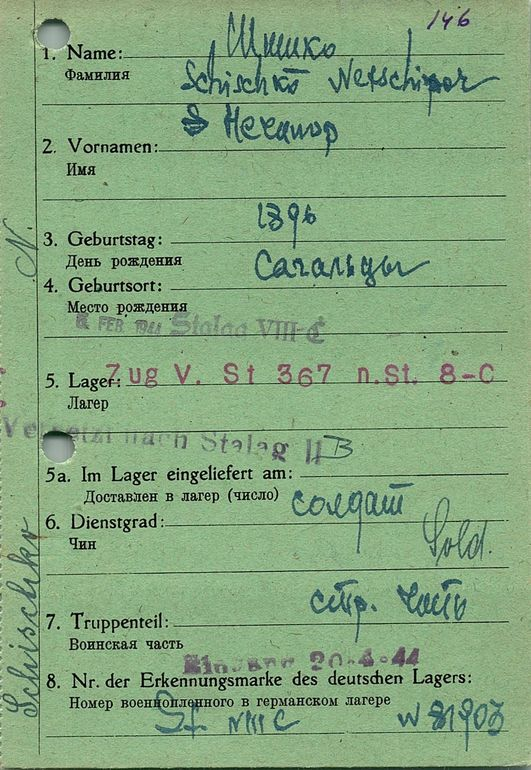 146
Шишко
1. Name:
Фамилия
Schischko Netschipor
2. Vornamen:
Имя
1896
3. Geburtstag:
День рождения
Сачальцы
4. Geburtsort:
Место рождения
FEB 1944 Stalag VIII-C
5. Lager: Zug V. St 367 n.St. 8-C
Лагер
Versetzt nach Stalag II B
5a. Im Lager eingeliefert am:
Доставлен в лагер (число)
солдат
6. Dienstgrad:
Чин
Sold.
стр. часть
7. Truppenteil:
Воинская часть
Eingang 20-4-44
8. Nr. der Erkennungsmarke des deutschen Lagers:
Номер военнопленного в германском лагере
VIII C
N 81903
Schischko N.